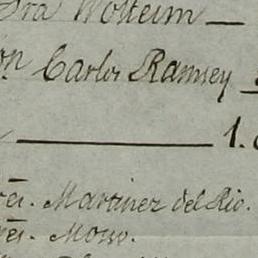 Sra Wolheim —
on Carlos Ramsey
— 1.
res. Martinez del Rio.
res. Moso.